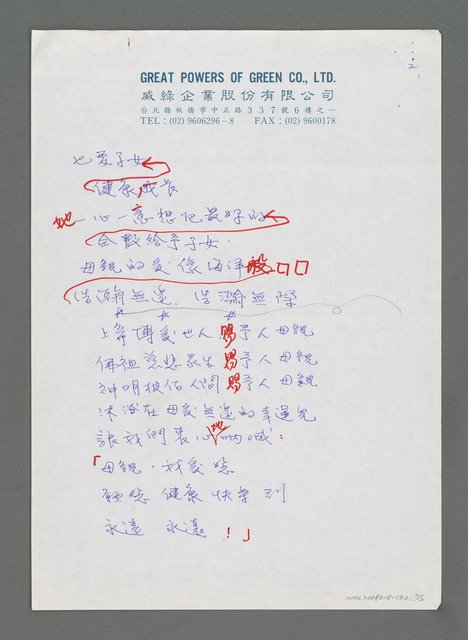 2.
GREAT POWERS OF GREEN CO., LTD.
威綠企業股份有限公司
台北縣板橋市中正路337號6樓之一
TEL:(02)9606296-8 FAX:(02)9600178
也愛子女
健康成長
她一心一意想把最好的
全數給予子女.
母親的愛像海洋般□□
浩瀚無邊.浩瀚無際
上帝博愛世人賜予人母親
佛祖慈悲眾生賜予人母親
神明披佑人間賜予人母親
沐浴在母愛無邊的幸運兒
讓我們衷心地吶喊:
「母親.我愛您
願您健康快樂到
永遠 永遠!」